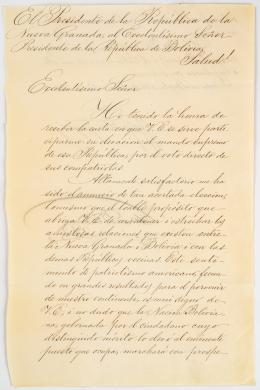 El Presidente de la República de la
Nueva Granada, al Excelentísimo Señor
Presidente de la República de Bolivia,
Salud!
Excelentísimo Señor
He tenido la honra de
recibir la carta en que V. E. se sirve parti-
ciparme su elevacion al mando supremo
de esa República, por el voto directo de
sus compatriotas.
Altamente satisfactorio me ha
sido el anuncio de tan acertada eleccion,
como me es el noble propósito que
abriga V. E. de mantener i estrechar las
amistosas relaciones que existen entre
la Nueva Granada i Bolivia i con las
demas Repúblicas vecinas. Este senti-
miento de patriotismo americano, fecun-
do en grandes resultados para el porvenir
de nuestro continente, es mui digno de
V. E., i no dudo que la Nacion Bolivia-
na, gobernada por el ciudadano cuyo
distinguido mérito lo elevó al eminente
puesto que ocupa, marchará con prospe-